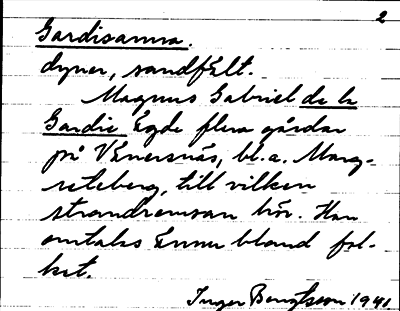 2
Gardisanna.
dyner, sandfält.
Magnus Gabriel de la
Gardie ägde flera gårdar
på Vänersnäs, bl.a. Marg-
reteberg, till vilken
strandremsan hör. Han
omtalas ännu bland fol-
ket.
Inger Bengtsson 1941